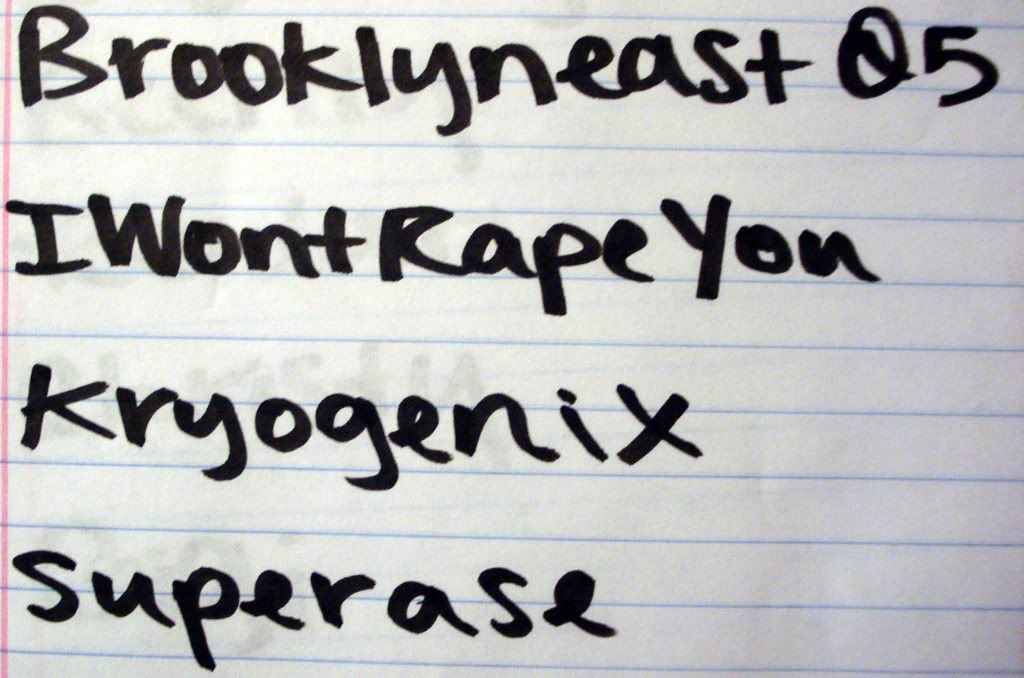 Brooklyneast Q5
IWontRapeYou
Kryogenix
superase